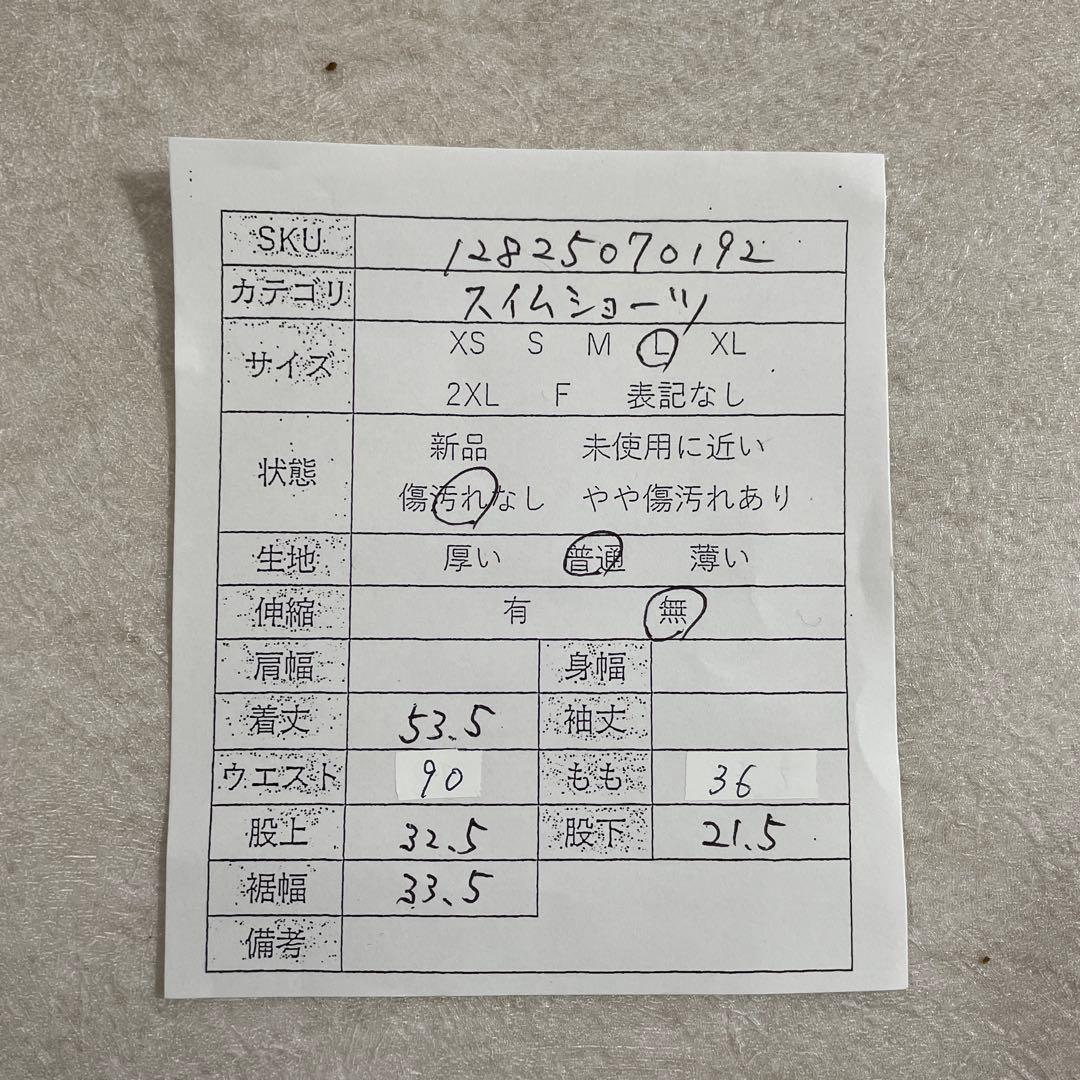 SKU 12825070192
カテゴリ スイムショーツ
サイズ XS S M L XL
2XL F 表記なし
状態 新品 未使用に近い
傷汚れなし やや傷汚れあり
生地 厚い 普通 薄い
伸縮 有 無
肩幅 身幅
着丈 53.5 袖丈
ウエスト 90 もも 36
股上 32.5 股下 21.5
裾幅 33.5
備考